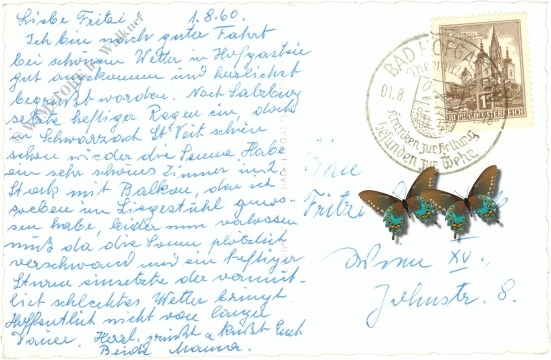 Liebe Fritzi 1.8.60.
Ich bin nach guter Fahrt
bei schönem Wetter in Hofgastein
gut angekommen und herzlichst
begrüßt worden. Nach Salzburg
setzte heftiger Regen ein, doch
in Schwarzach St Veit schien
schon wieder die Sonne. Habe
ein sehr schönes Zimmer im 2.
Stock mit Balkon, den ich
soeben im Liegestühl genos-
sen habe, leider nun verlassen
muß da die Sonne plötzlich
verschwand und ein heftiger
Sturm einsetzte der vermut-
lich schlechtes Wetter bringt
Hoffentlich nicht von langer
Dauer. Herzl. grüßt u küßt Euch
Beide Mama.
BAD HOFGA
01.8.
Kranken zur Heilung
Gesunden zur Wehr
REPUBLIK ÖSTERREICH
Frau
Fritzi
Wien XV.
Johnstr. 8.